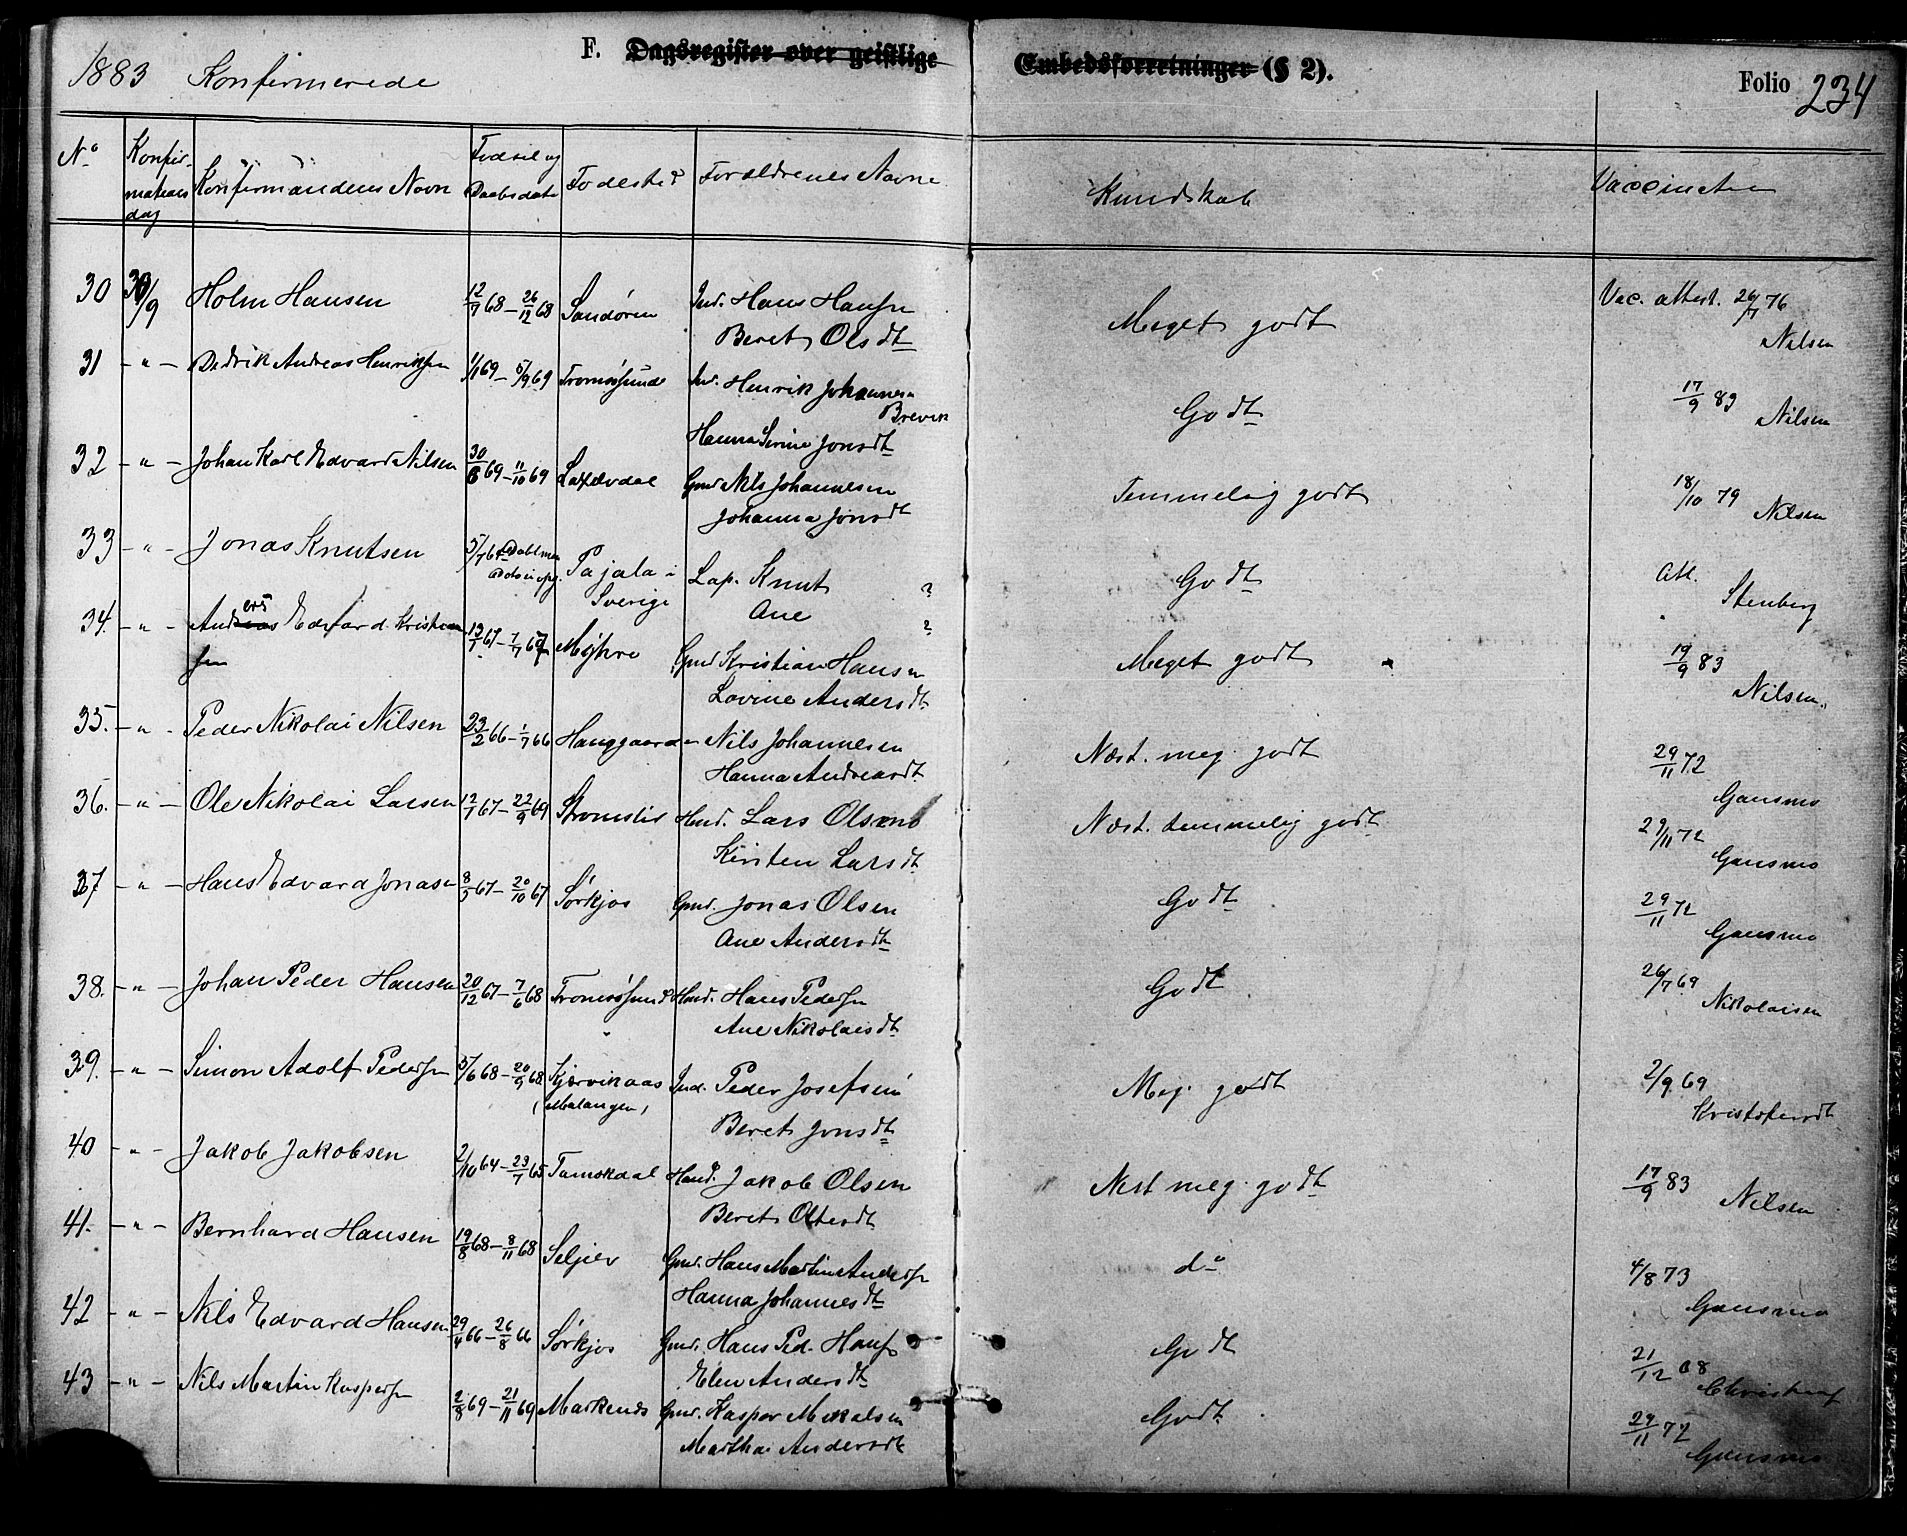 F. Dagsregister over geistlige Embedsforretninger (§ 2).
1883 Konfirmerede
Folio 234
No Konfirmations dag Konfirmandens Navn Fødsel og Daabsdato Fødested Forældrenes Navne Kundskab Vaccination
30 30/9 Holm Hansen 12/7 68 – 26/12 68 Sandøren Ind. Hans Hansen Meget godt Vac. attest. 26/7 76
Beret Olsdt Nilsen
31 – " – Didrik Andreas Henriksen 1/1 69 – 5/9 69 Tromsøsund Ind. Henrik Johannesen Godt 17/9 83
Brevik Nilsen
Hanna Serine Jonsdt
32 – " – Johan Karl Edvard Nilsen 30/6 69 – 11/10 69 Laxelvdal Gmd Nils Johannesen Temmelig godt 18/10 79
Johanna Jonsdt Nilsen
33 – " – Jonas Knutsen 5/7 Pajala i Lap. Knut ? Godt Att.
Sverige Ane ? Stenberg
34. – " – Anders Edvard Kristian 13/1 67 – 7/7 67 Mykre Gmd Kristian Hansen Meget godt 19/9 83
sen Lovine Andersdt Nilsen.
35. – " – Peder Nikolai Nilsen 23/2 66 – 1/7 66 Nils Johannesen Næst. meg. godt 29/11 72
Hanna Andreasdt Gausmo
36. – " – Ole Nikolai Larsen 12/7 67 – 22/9 69 Hmd. Lars Olsen Næst. temmelig godt 29/11 72
Kirsten Larsdt Gausmo
37 – " – Hans Edvard Jonasen 8/5 67 – 20/10 67 Sørkjos Gmd. Jonas Olsen Godt 29/11 72
Ane Andersdt Gausmo
38. – " – Johan Peder Hansen 20/12 67 – 7/6 68 Tromsøsund Hmd. Hans Pedersen Godt 26/7 69
Ane Nikolaisdt Nikolaisen
39. – " – Simon Adolf Pedersen 5/6 68 – 20/9 68 Kjærvikaas Ind. Peder Josefsen Meg. godt 2/9 69
(Malangen) Beret Jonsdt Kristofersdt
40 – " – Jakob Jakobsen 2/10 64 – 23/7 65 Tamokdal Hmd. Jakob Olsen Nest meg. godt 17/9 83
Beret Olsdt Nilsen
41. – " – Bernhard Hansen 19/8 68 – 8/11 68 Seljev Gmd. Hans Martin Andersen do 4/8 73
Hanna Johannesdt Gausmo
42 – " – Nils Edvard Hansen 29/4 66 – 26/8 66 Sørkjos Gmd. Hans Ped. Hansen Godt 21/12 68
Elen Andersdt
43 – " – Nils Martin Kaspersen 2/8 69 – 21/11 69 Markenes Gmd. Kasper Mikalsen Godt 29/11 72
Martha Andersdt Gausmo